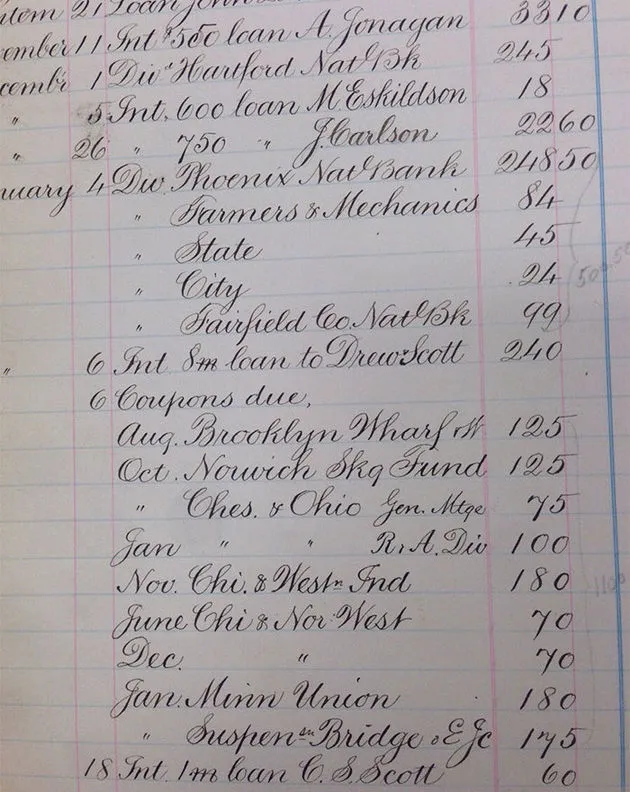 21 Loan John
ember 11 Int $550 loan A. Jonagan 33 10
cembr 1 Div Hartford Natl Bk 245
" 5 Int. 600 loan M Eskildson 18
" 26 " 750 " J. Carlson 22 60
nuary 4 Div Phoenix Natl Bank 248 50
" Farmers & Mechanics 84
" State 45
" City 24
" Fairfield Co. Natl Bk 99
" 6 Int 8m loan to Drew & Scott 240
6 Coupons due,
Aug. Brooklyn Wharf & W 125
Oct. Norwich Skg Fund 125
" Ches. & Ohio Gen. Mtge 75
Jan " " R & A. Div 100
Nov. Chi. & Westn Ind 180
June Chi & Nor West 70
Dec. " 70
Jan. Minn Union 180
" Suspensn Bridge & E Jc 175
18 Int 1m loan C. S. Scott 60